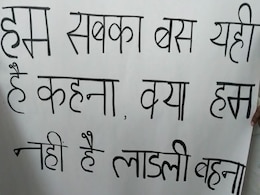 हम सबका बस यही
है कहना, क्या हम
नही है लाडली बहना